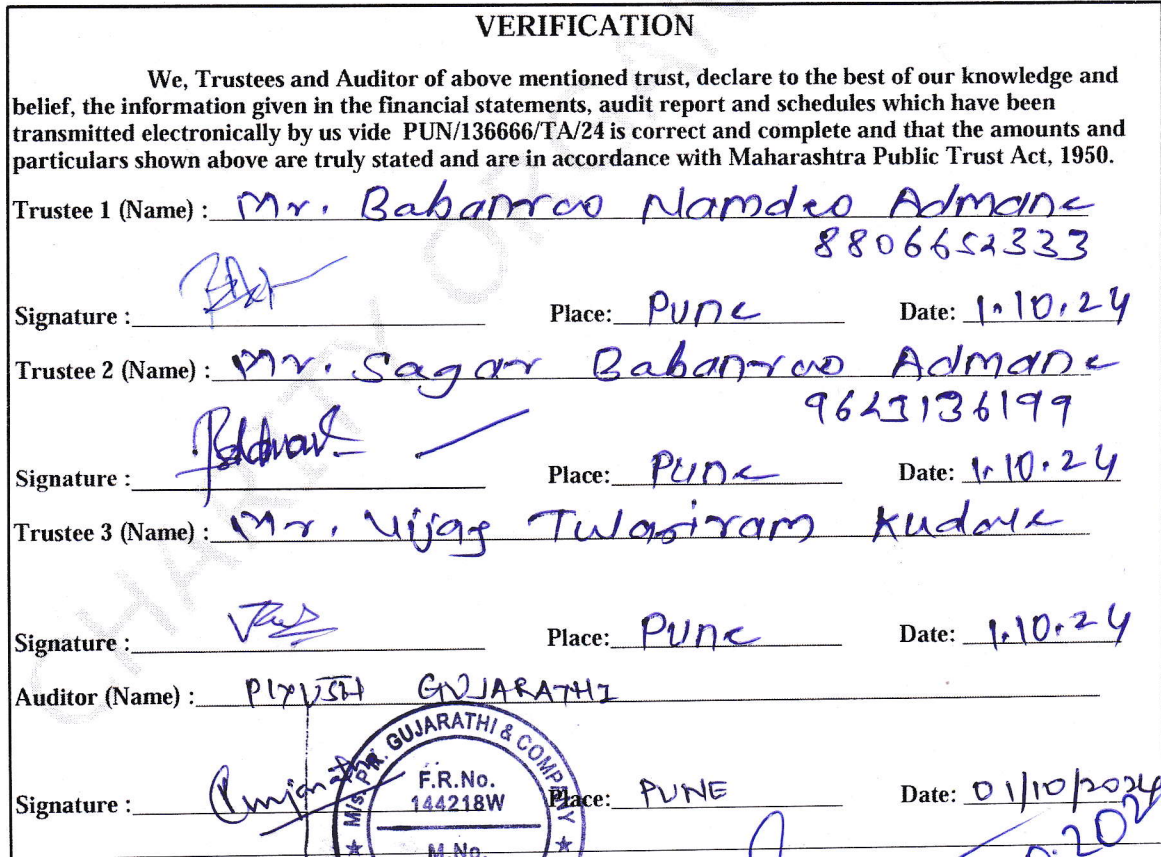 VERIFICATION
We, Trustees and Auditor of above mentioned trust, declare to the best of our knowledge and
belief, the information given in the financial statements, audit report and schedules which have been
transmitted electronically by us vide PUN/136666/TA/24 is correct and complete and that the amounts and
particulars shown above are truly stated and are in accordance with Maharashtra Public Trust Act, 1950.
Trustee 1 (Name) : Mr. Babanrao Namdeo Admane
8806652333
Signature : Place: Pune Date: 1.10.24
Trustee 2 (Name) : Mr. Sagar Babanrao Admane
9623136199
Signature : Place: Pune Date: 1.10.24
Trustee 3 (Name) : Mr. Vijay Tulasiram Kudale
Signature : Place: Pune Date: 1.10.24
Auditor (Name) : PIYUSH GUJARATHI
M/s. P.R. GUJARATHI & COMPANY
F.R.No.
144218W
Signature : Place: PUNE Date: 01/10/2024
M.No.